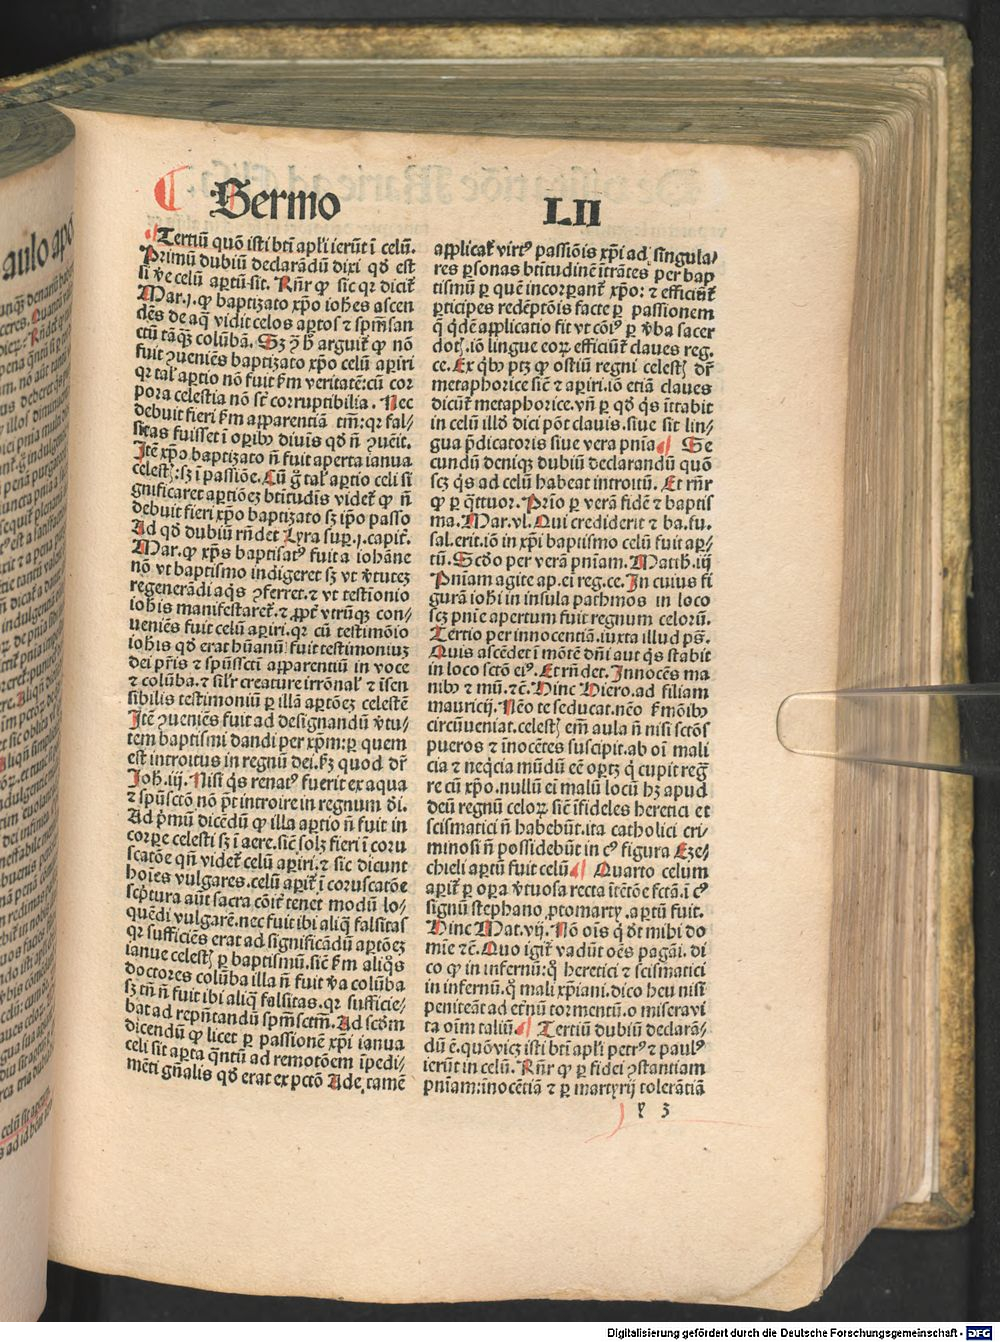 Sermo LII
Tertiū quō isti bti apl'i ierūt ī celū.
Primū dubiū declarādū dixi qđ est
si v̄e celū aptū sit. Rn̄r ꝙ sic qr dicit̄
Mar.j. ꝙ baptizato xp̄o iohēs ascen
dēs de aq̄ vidit celos aptos ⁊ spm̄ san
ctū tāqꝫ colūbā. Sꝫ ꝯ B arguit̄ ꝙ nō
fuit ꝯueniēs baptizato xp̄o celū apiri
qr tal' aptio nō fuit fm veritatē: cū cor
pora celestia nō sc̄ corruptibilia. Nec
debuit fieri fm apparentiā tm̄: qr fal-
sitas fuisset ī opibꝰ diuīs qđ n̄ ꝯuēit.
Itē xp̄o baptizato n̄ fuit aperta ianua
celestꝫ: sꝫ ī passiōe. Cū g̃ tal' aptio celi si
gnificaret aptiōeꝫ btitudis videt̄ ꝙ n̄
debuit fieri xp̄o baptizato sꝫ ip̄o passo
Ad qđ dubiū rn̄det Lyra sup.j. capit̄.
Mar. ꝙ xp̄s baptisatꝰ fuit a iohāne
nō vt baptismo indigeret sꝫ vt v̄tuteꝫ
regenerādi aq̄s ꝯferret. ⁊ vt testīonio
iohīs manifestaret̄. ⁊ ꝓpt̄ vtrūqꝫ con-
ueniēs fuit celū apiri. qr cū testimōio
iohīs qđ erat hūanū fuit testimoniuꝫ
dei pr̄is ⁊ sp̄ussctī apparentiū in voce
⁊ colūba. ⁊ sil'r creature irrōnal' ⁊ īsen
sibilis testimoniū p illā aptōeꝫ celestē
Itē ꝯueniēs fuit ad designandū v̄tu-
tem baptismi dandi per xp̄m: p quem
est introitus in regnū dei. fꝫ quod dr̄
Joh.iij. Nisi q̄s renatꝰ fuerit ex aqua
⁊ sp̄usctō nō pt̄ introire in regnum d̄i.
Ad p̄mū dicēdū ꝙ illa aptio n̄ fuit in
corpe celesti sꝫ ī aere. sic̄ solꝫ fieri ī coru
scatōe qn̄ videt̄ celū apiri. ⁊ sic dicunt
hoīes vulgares. celū apit̄ ī coruscatōe
scptura aūt sacra cōit̄ tenet modū lo-
quēdi vulgarē. nec fuit ibi aliq̄ falsitas
qr sufficiēs erat ad significādū aptōeꝫ
ianue celestꝫ p baptismū. sic̄ fm aliq̄s
doctores colūba illa n̄ fuit v̄a colūba
sꝫ tn̄ n̄ fuit ibi aliq̄ falsitas. qr sufficie-
bat ad repn̄tandū spm̄sctm̄. Ad scd̄m
dicendū ꝙ licet p passionē xp̄i ianua
celi sit apta q̄ntū ad remotōem īpedi-
mēti gn̄alis qđ erat ex pctō Ade. tamē
applicat̄ virtꝰ passiōis xp̄i ad singula-
res psonas btitudinē ītrātes per bap
tismū p quē incorporant̄ xp̄o: ⁊ efficiūt̄
pticipes redēptōis facte p passionem
q̄ q̄dē applicatio fit vt cōiꝰ p v̄ba sacer
dotꝫ. iō lingue eoꝝ efficiūt̄ claues reg.
ce. Ex q̄bꝰ ptꝫ ꝙ ostiū regni celestꝫ dr̄
metaphorice sic̄ ⁊ apiri. iō etiā claues
dicūt̄ metaphorice. vn̄ p qđ q̄s ītrabit
in celū illđ dici pōt clauis. siue sit lin-
gua p̄dicatoris siue vera pn̄ia. Se
cundū deniqꝫ dubiū declarandū quō
scꝫ q̄s ad celū habeat introitū. Et rn̄r
ꝙ p q̄ttuor. Prīo p verā fidē ⁊ baptis
ma. Mar.vl. Qui crediderit ⁊ ba. fu.
sal. erit. iō in xp̄i baptismo celū fuit ap-
tū. Scd̄o per verā pn̄iam. Matth.iij
Pn̄iam agite ap. ei reg. ce. In cuius fi
gurā iohī in insula pathmos in loco
scꝫ pn̄ie apertum fuit regnum celorū.
Tertio per innocentiā. iuxta illud pś.
Quis ascēdet ī mōtē dn̄i aut q̄s stabit
in loco sctō eiꝰ. Et rn̄det. Innocēs ma
nibꝰ ⁊ mū. ⁊c̄. Hinc Hiero. ad filiam
mauricij. Nēo te seducat. nēo fm̄ōibꝰ
circūueniat. celestꝫ em̄ aula n̄ nisi sctōs
pueros ⁊ inocētes suscipit. ab oī mali
cia ⁊ neq̄cia mūdū eē oportꝫ q̄ cupit reg̃
re cū xp̄o. nullū ei malū locū hꝫ apud
deū regnū celoꝝ sic̄ īfideles heretici et
scismatici n̄ habebūt. ita catholici cri-
minosi n̄ possidebūt in cꝰ figura Eze-
chieli aptū fuit celū. Quarto celum
apit̄ p opa v̄tuosa recta ītētōe fctā. ī cꝰ
signū stephano ꝓtomarty. aptū fuit.
Hinc Mat.vij. Nō oīs q̄ dt mihi do
mīe ⁊c̄. Quo igit̄ vadūt oēs pagāi. di
co ꝙ in infernū: q̊ heretici ⁊ scismatici
in infernū. q̊ mali xp̄iani. dico heu nisi
peniteāt ad et̄nū tormentū. o miseravi
ta oīm taliū. Tertiū dubiū declarā-
dū ē. quōvicꝫ isti bti apl'i petrꝰ ⁊ paulꝰ
ierūt in celū. Rn̄r ꝙ p fidei ꝯstantiam
pn̄iam: inocētiā ⁊ p martyrij tolerātiā
y 3
Digitalisierung gefördert durch die Deutsche Forschungsgemeinschaft - DFG